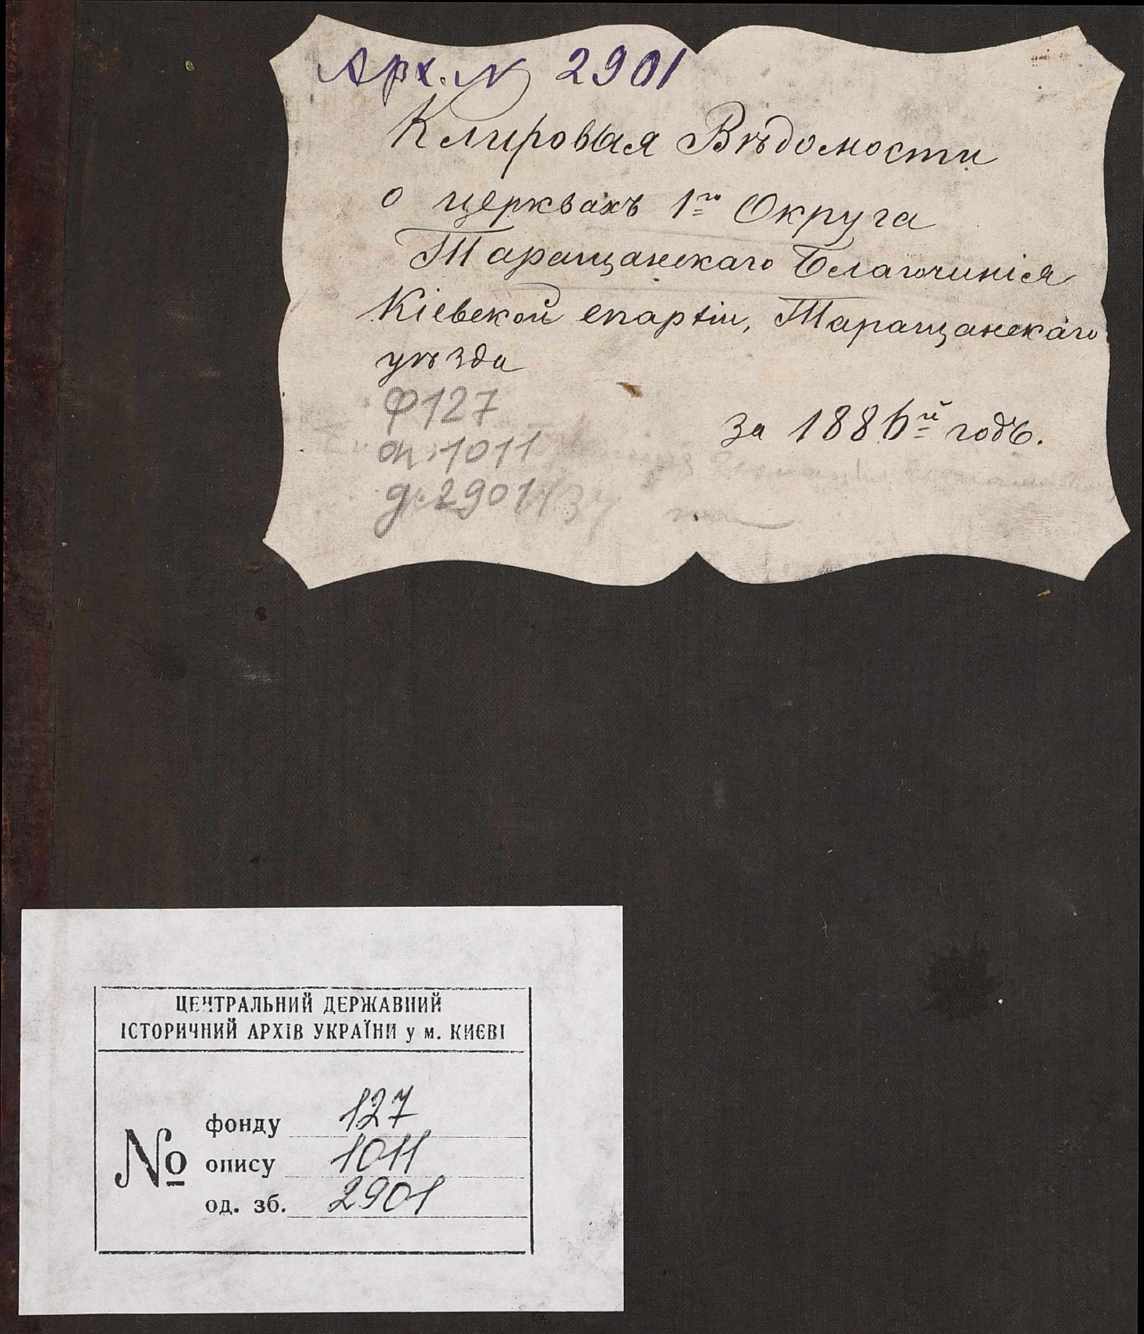 Арх. N 2901
Клировыя Вѣдомости
о церквахъ 1го Округа
Таращанскаго Благочинія
Кіевской епархіи, Таращанскаго
уѣзда
за 1886й годъ.
ф 127
оп. 1011
д. 2901
ЦЕНТРАЛЬНИЙ ДЕРЖАВНИЙ
ІСТОРИЧНИЙ АРХІВ УКРАЇНИ у м. КИЄВІ
№
фонду 127
опису 1011
од. зб. 2901